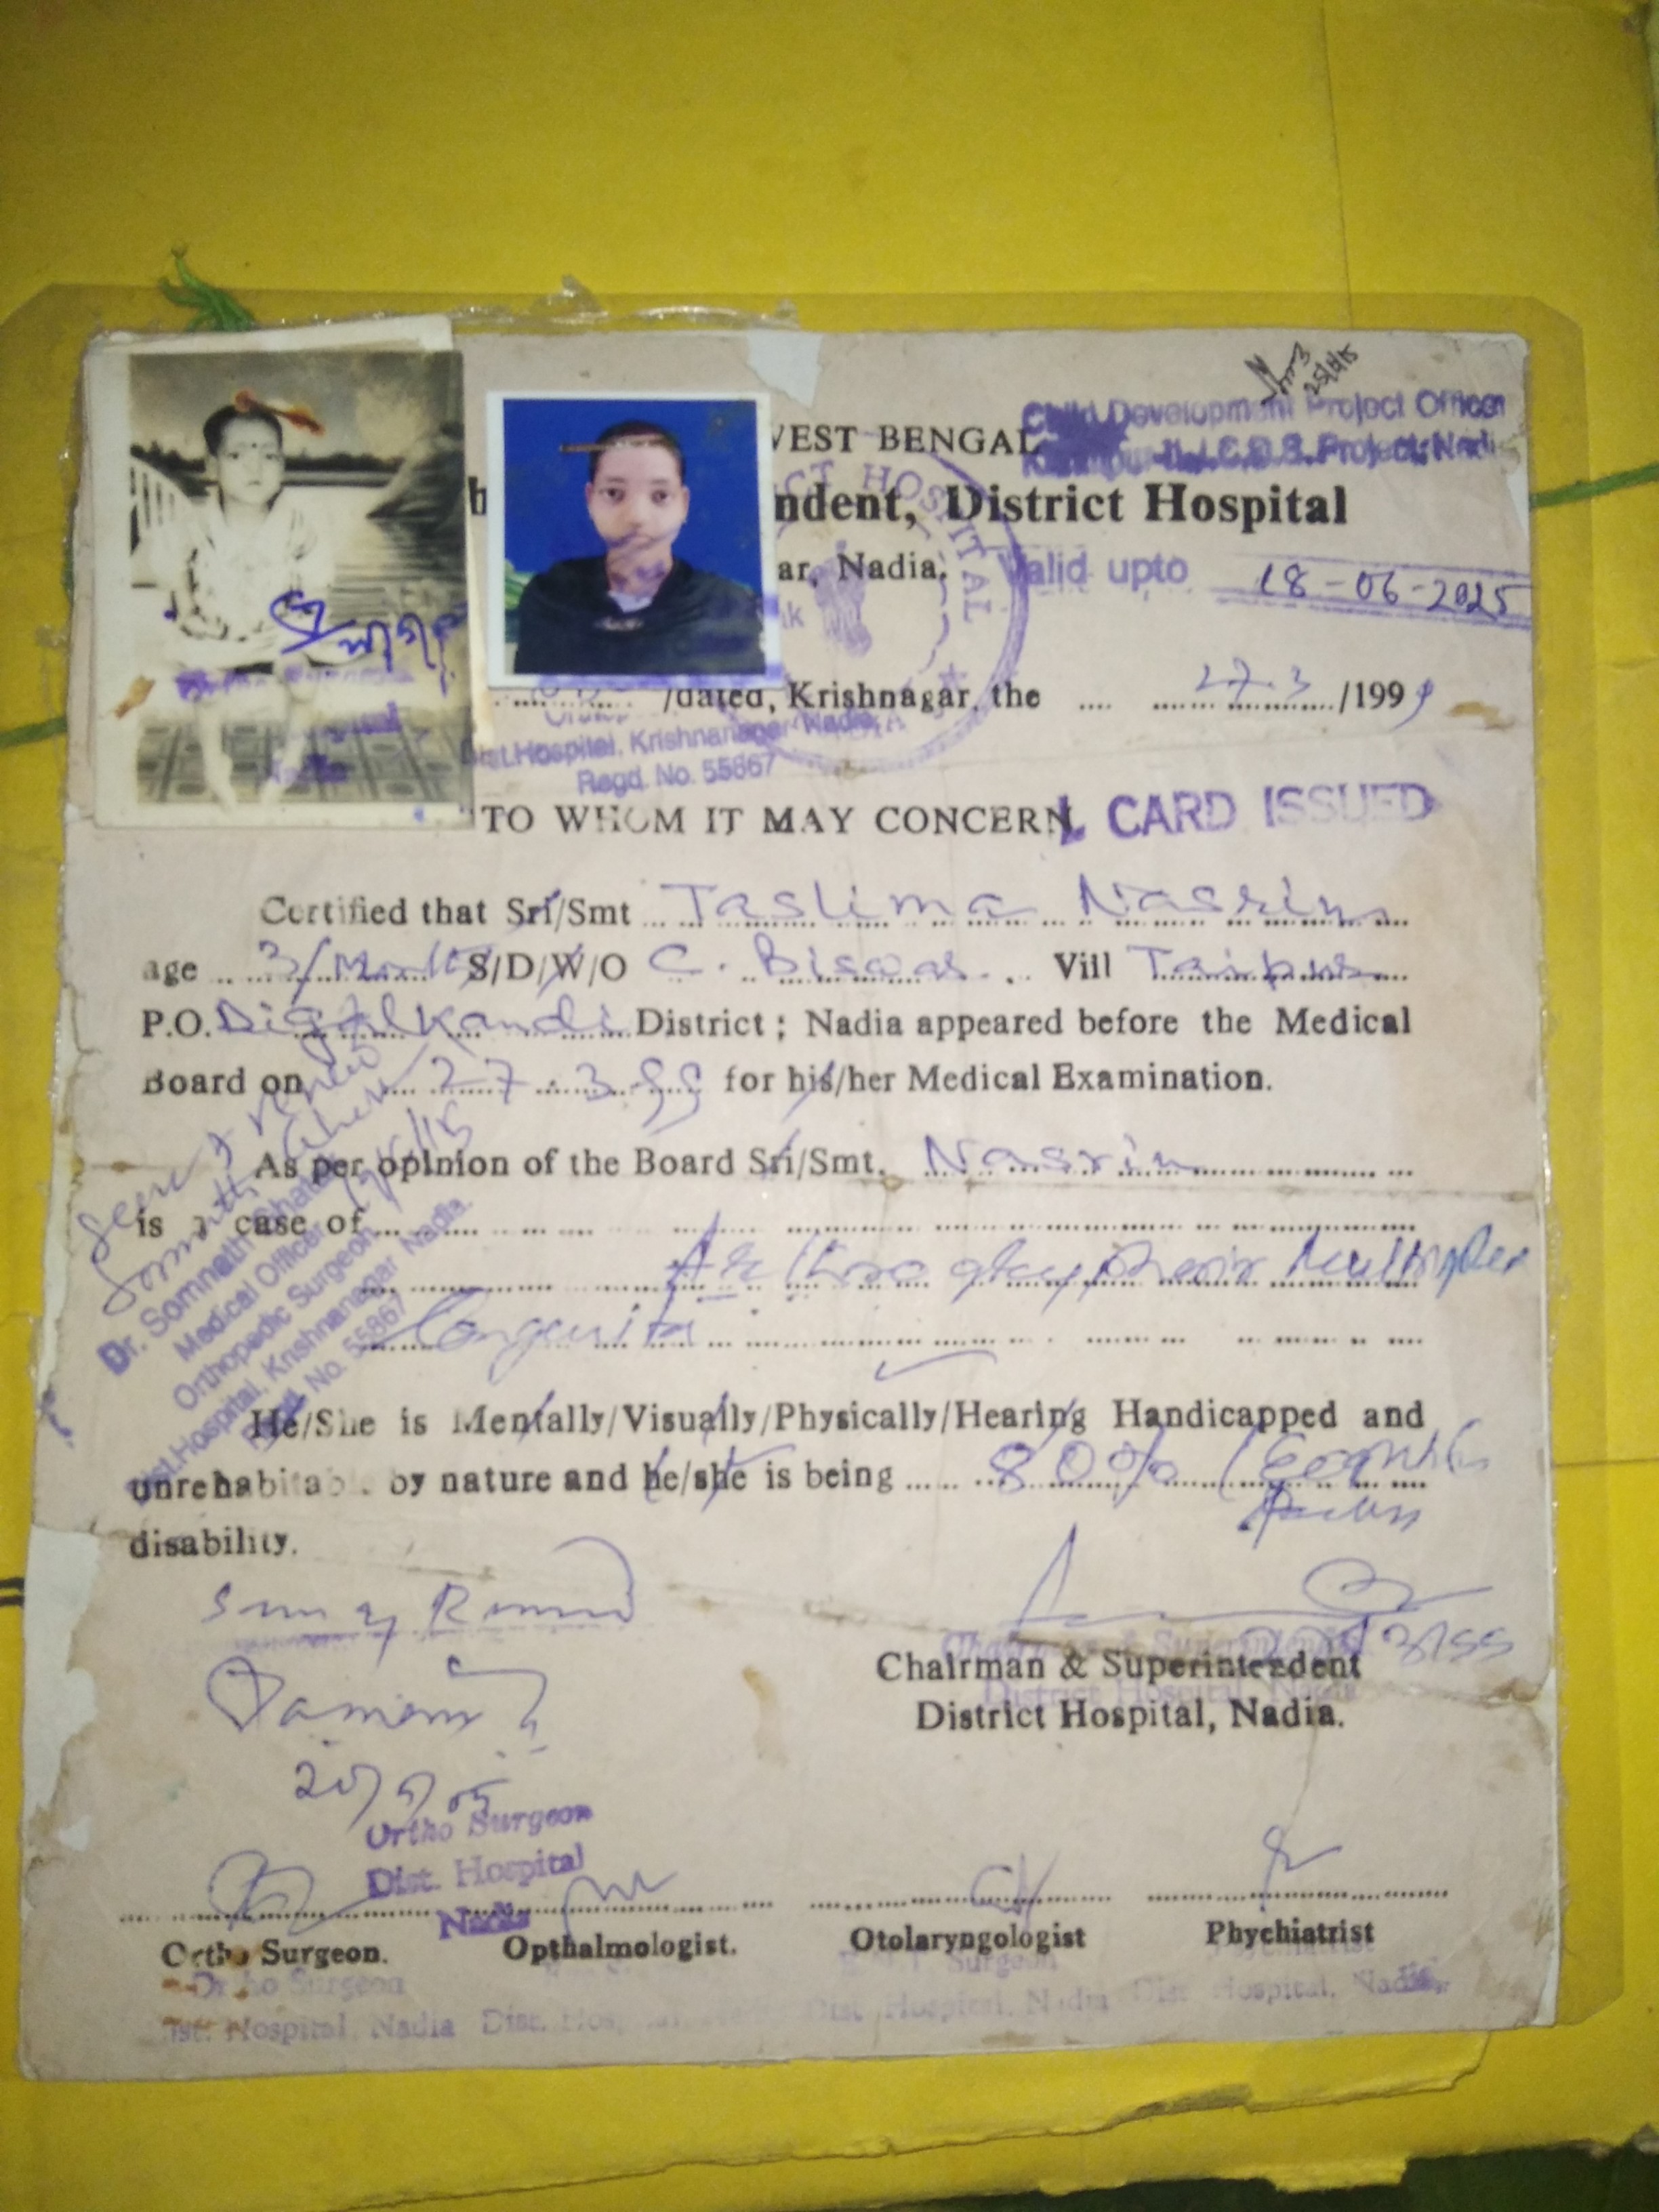 WEST BENGAL
Child Development Project Officer
I.C.D.S. Project, Nadi
25/6/15
ndent, District Hospital
ar, Nadia.
Valid upto 18-06-2025
DISTRICT HOSPITAL
/dated, Krishnagar, the .... 27.3 /1999
Dist.Hospital, Krishnanagar Nadia
Regd. No. 55867
TO WHOM IT MAY CONCERN
I. CARD ISSUED
Certified that Sri/Smt Taslima Nasrin
age 3/ S/D/W/O C. Biswas Vill Taipur
P.O. Digalkandi District ; Nadia appeared before the Medical
Board on 27.3.99 for his/her Medical Examination.
As per opinion of the Board Sri/Smt. Nasrin
is a case of
Multiplex
Congenita
Seen &
Dr. Somnath
Medical Officer
Orthopedic Surgeon
Dist.Hospital, Krishnanagar Nadia.
Regd. No. 55867
He/She is Mentally/Visually/Physically/Hearing Handicapped and
unrehabitable by nature and he/she is being 80%
disability.
Chairman & Superintendent
District Hospital, Nadia.
Ortho Surgeon
Dist. Hospital
Nadia
Ortho Surgeon.
Opthalmologist.
Otolaryngologist
Phychiatrist
Ortho Surgeon
Surgeon
Dist. Hospital Nadia
Dist. Hospital, Nadia
Dist. Hospital, Nadia